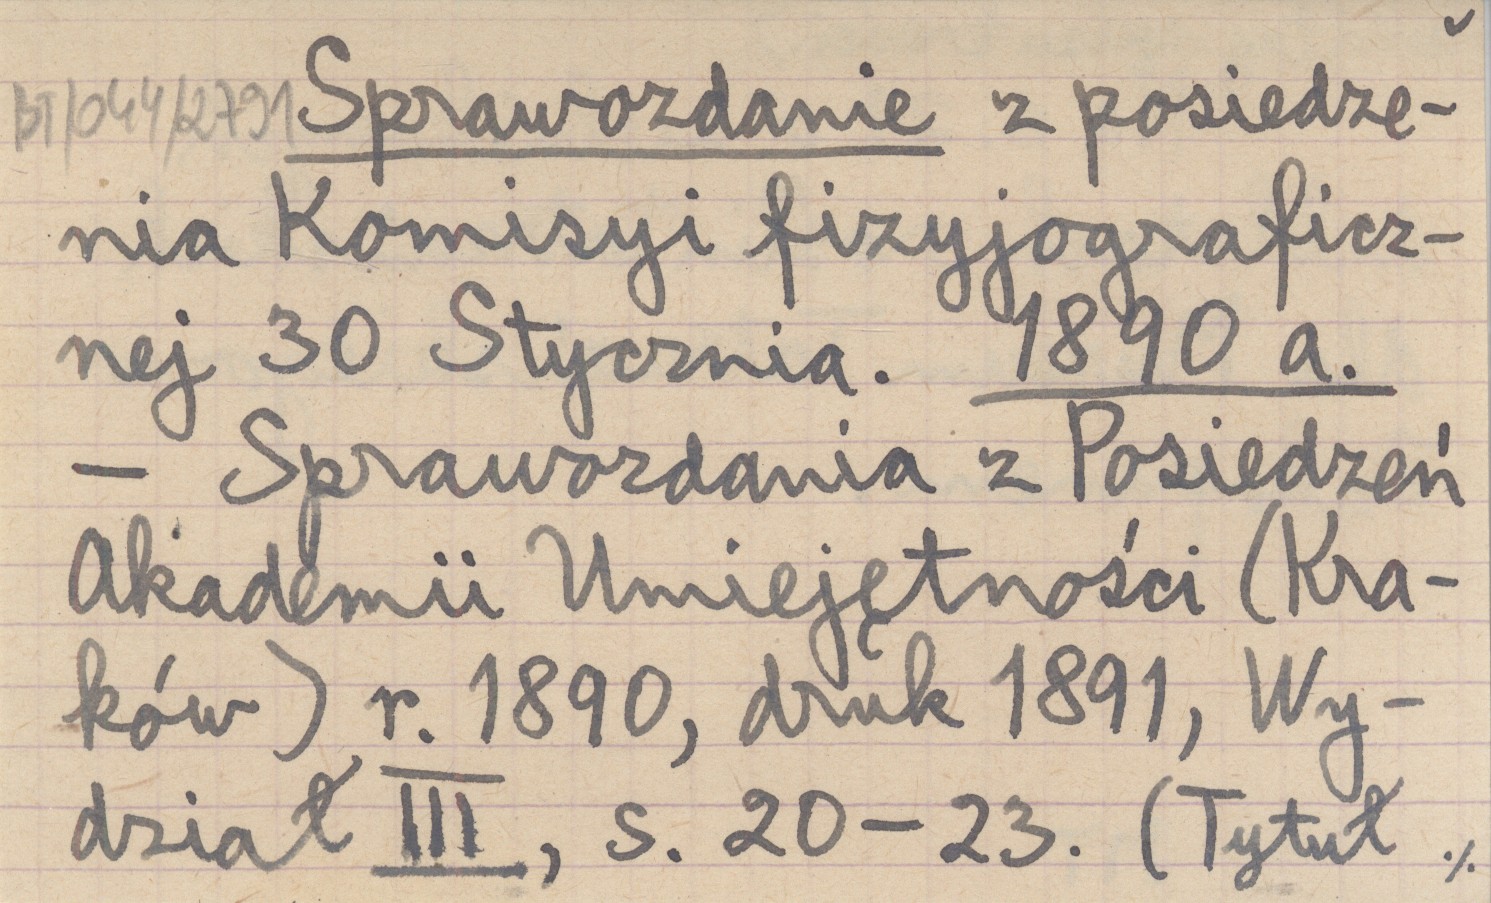 BT/044/2791 Sprawozdanie z posiedze-
nia Komisyi fizyjograficz-
nej 30 Stycznia. 1890 a.
- Sprawozdania z Posiedzeń
Akademii Umiejętności (Kra-
ków) r. 1890, druk 1891, Wy-
dział III, s. 20-23. (Tytuł ./.